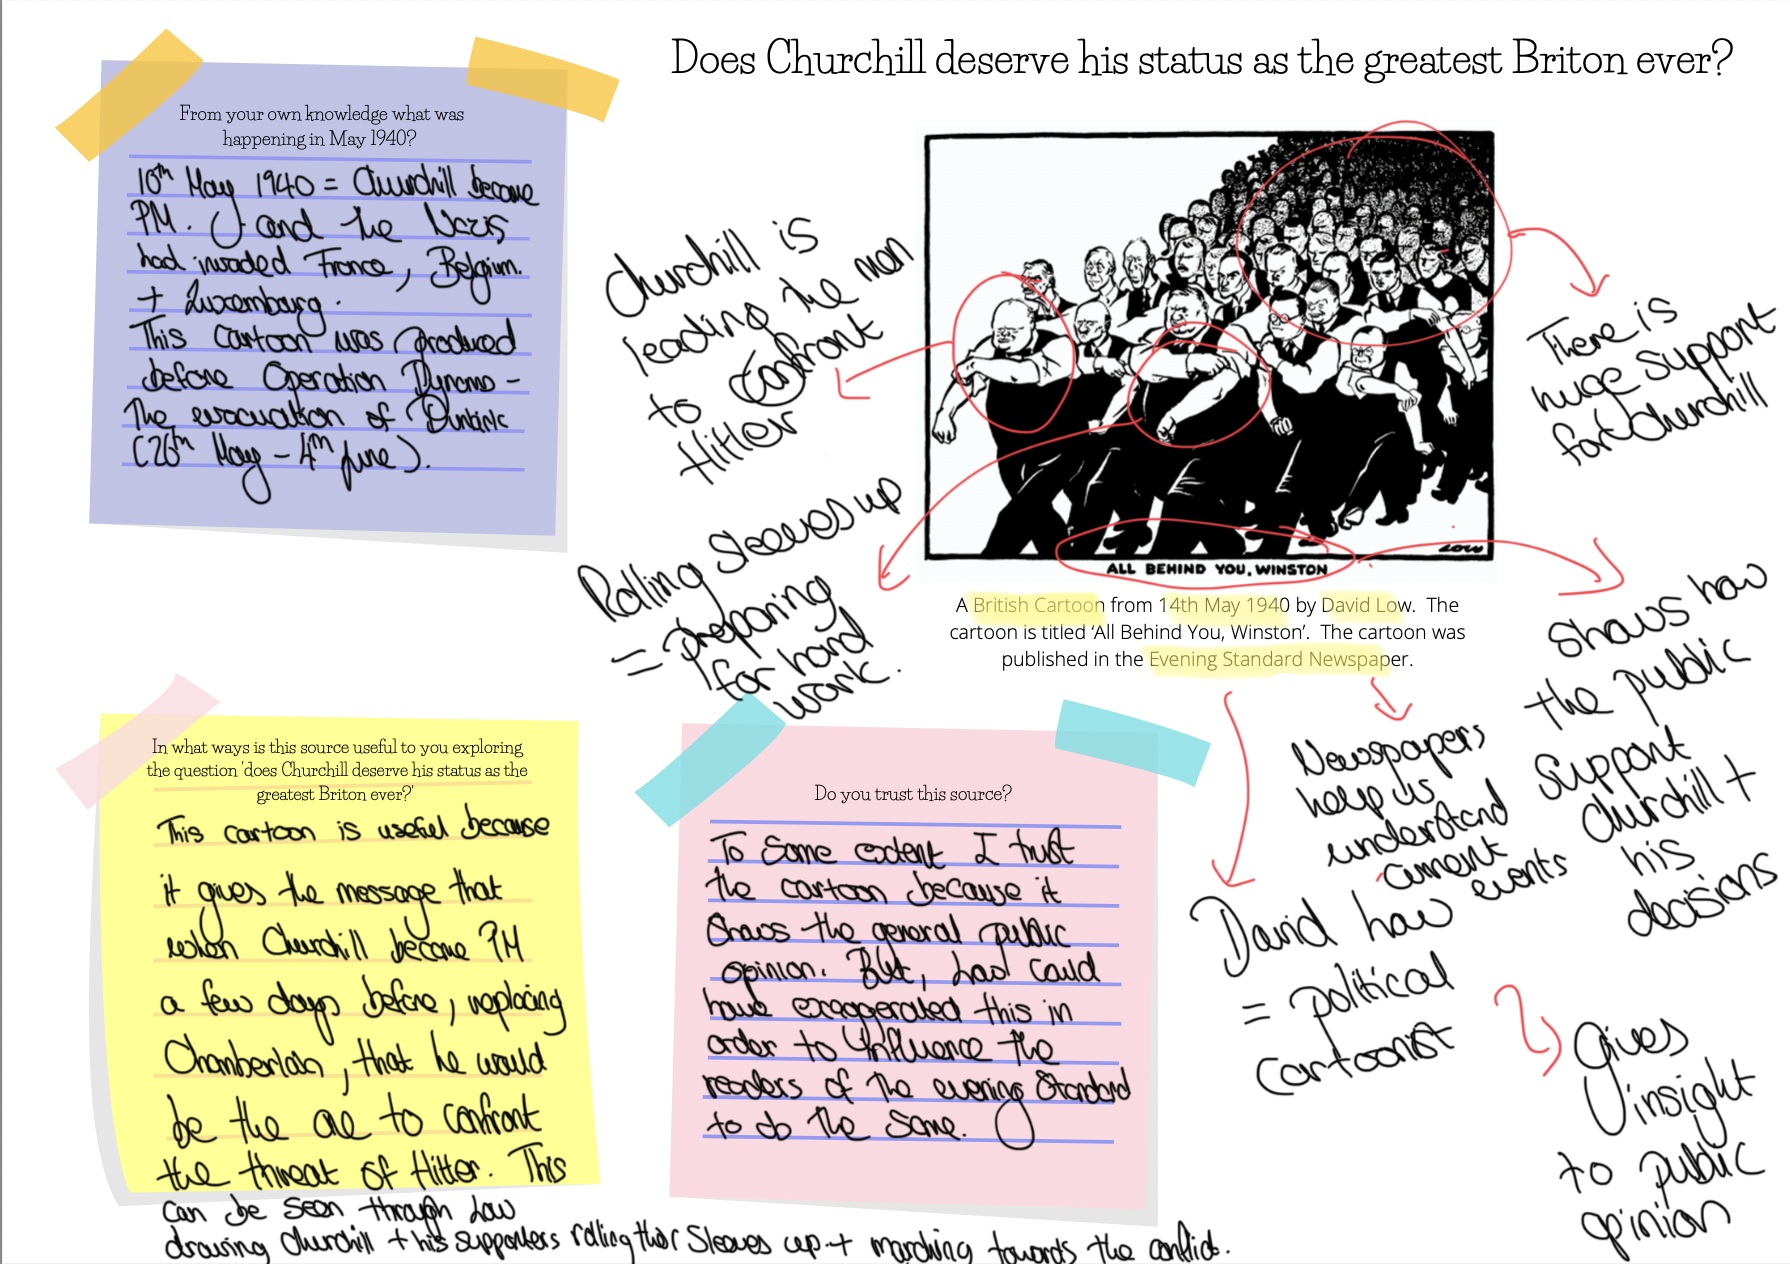 Does Churchill deserve his status as the greatest Briton ever?
From your own knowledge what was
happening in May 1940?
10th May 1940 = Churchill became
PM. and the Nazis
had invaded France, Belgium.
+ Luxemburg.
This cartoon was produced
before Operation Dynamo -
The evacuation of Dunkirk
(26th May - 4th June).
Churchill is
leading the men
to confront
Hitler
Rolling sleeves up
= preparing
for hard
work.
There is
huge support
for Churchill
LOW
ALL BEHIND YOU, WINSTON
A British Cartoon from 14th May 1940 by David Low. The
cartoon is titled 'All Behind You, Winston'. The cartoon was
published in the Evening Standard Newspaper.
Shows how
the public
support
Churchill +
his
decisions
Newspapers
help us
understand
current
events
David Low
= political
cartoonist
Gives
insight
to public
opinion
In what ways is this source useful to you exploring
the question 'does Churchill deserve his status as the
greatest Briton ever?'
This cartoon is useful because
it gives the message that
when Churchill became PM
a few days before, replacing
Chamberlain, that he would
be the one to confront
the threat of Hitler. This
can be seen through Low
drawing Churchill + his supporters rolling their sleeves up + marching towards the conflict.
Do you trust this source?
To some extent I trust
the cartoon because it
shows the general public
opinion. But, Low could
have exaggerated this in
order to influence the
readers of the evening Standard
to do the same.